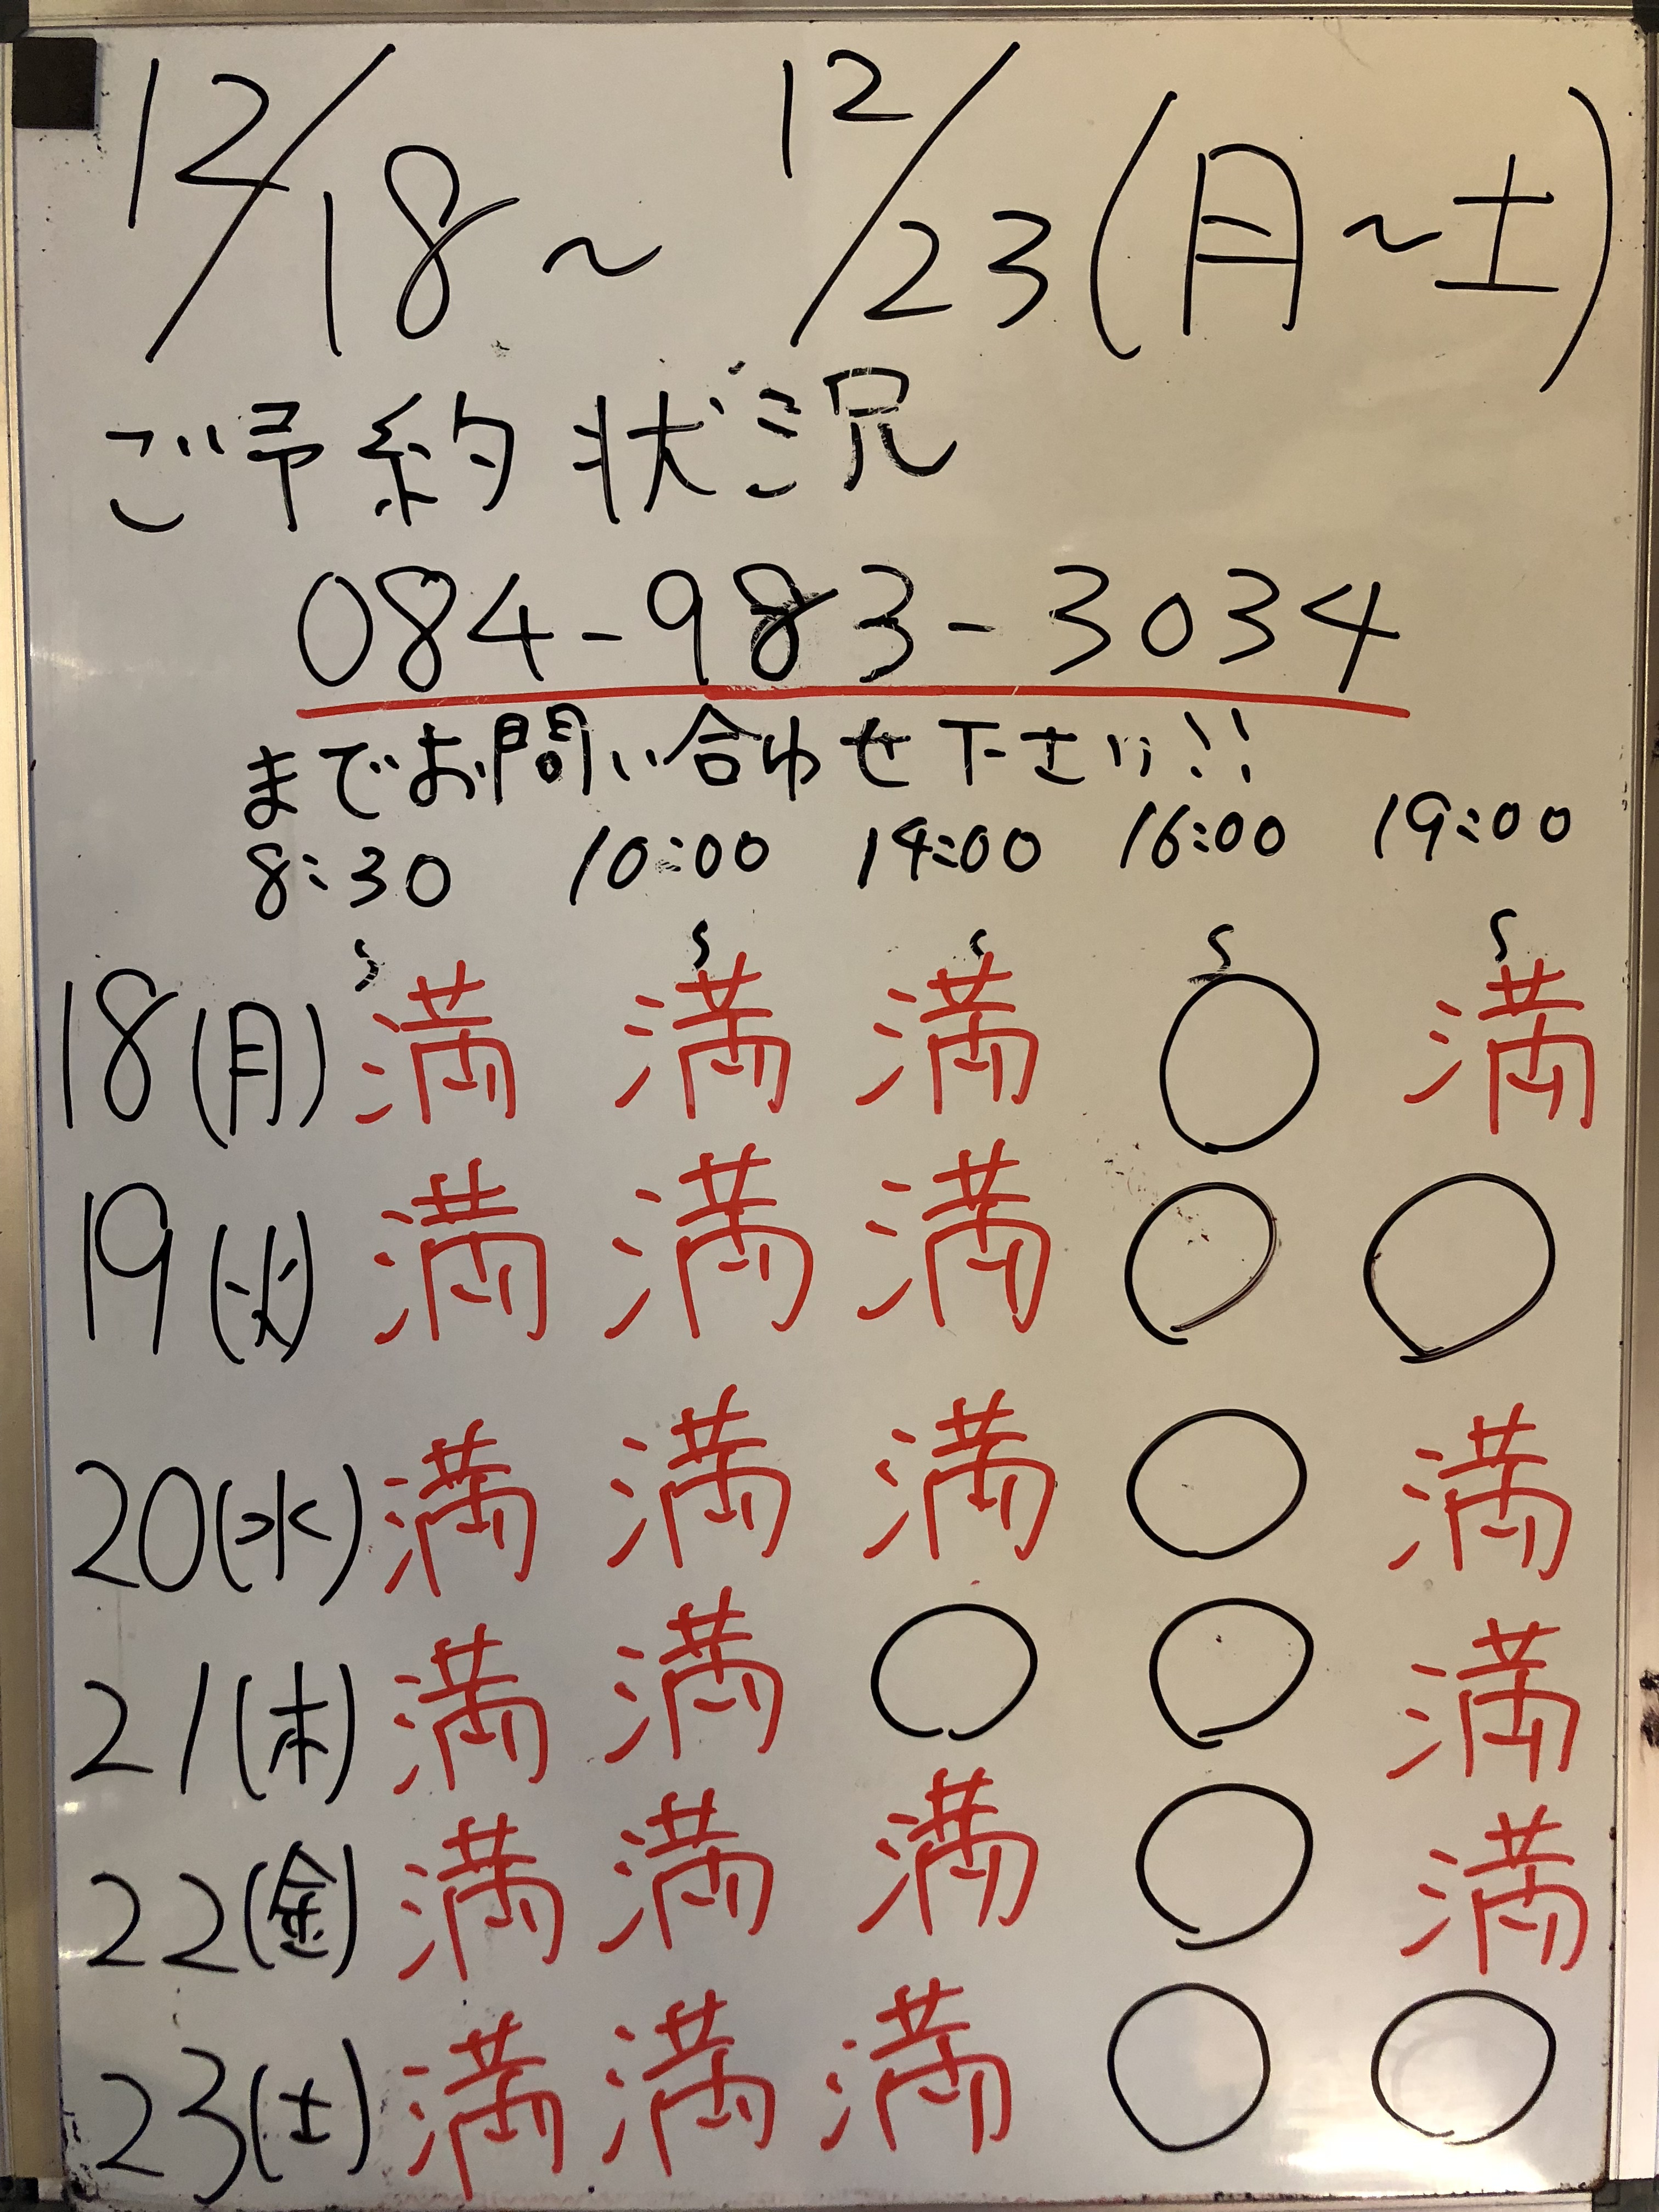 12/18～12/23(月～土)
ご予約状況
084-983-3034
までお問い合わせ下さい!!
8:30 10:00 14:00 16:00 19:00
~ ~ ~ ~ ~
18(月) 満 満 満 ○ 満
19(火) 満 満 満 ○ ○
20(水) 満 満 満 ○ 満
21(木) 満 満 ○ ○ 満
22(金) 満 満 満 ○ 満
23(土) 満 満 満 ○ ○